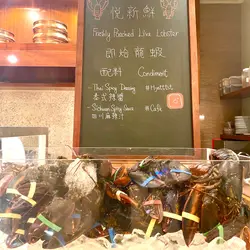 悅新鮮
Freshly Poached Live Lobster
即焓龍蝦
配料 Condiment
- Thai Spicy Dressing
泰式辣醬
- Sichuan Spicy Sauce
四川麻辣汁
#Hyatttst
#Cafe